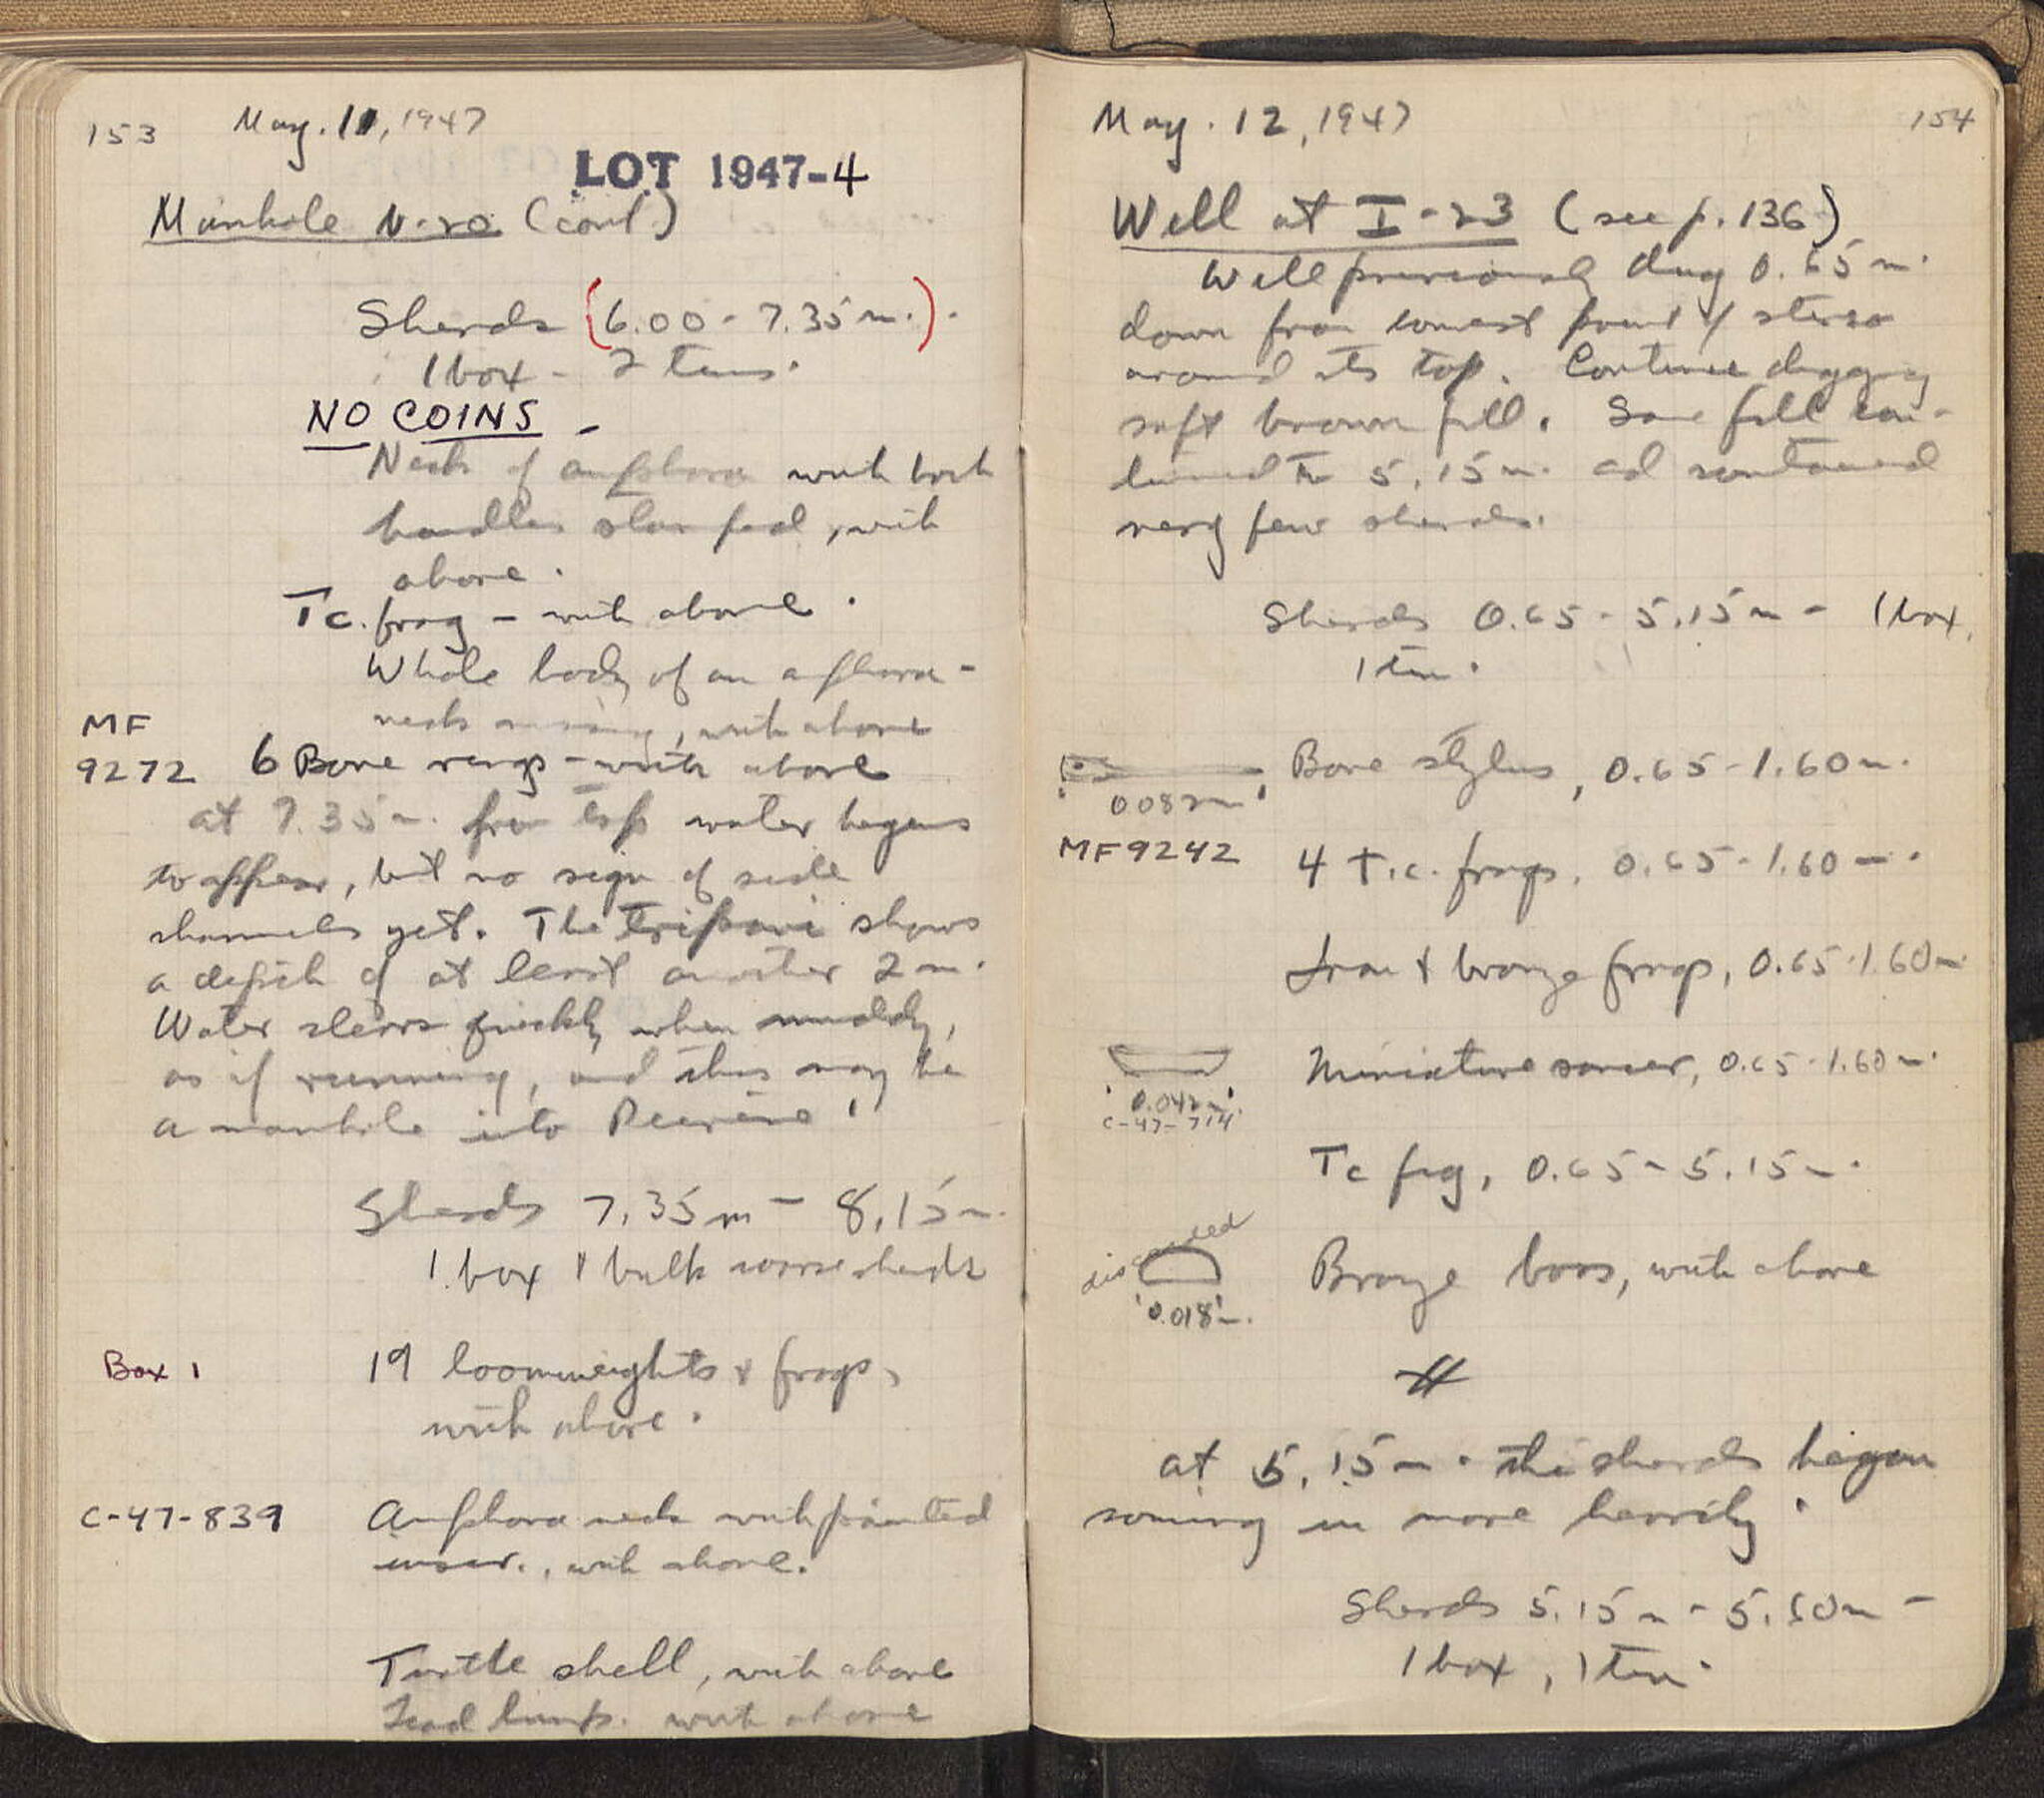 153 May. 11, 1947
LOT 1947-4
Manhole N-20 (cont.)
Sherds (6.00 - 7.35 m.).
1 box - 2 tins.
NO COINS -
Neck of amphora with both
handles stamped, with
above.
Tc. frag - with above.
Whole body of an amphora -
neck missing, with above
MF
9272 6 Bone rings - with above
at 7.35 m. from top water began
to appear, but no sign of side
channels yet. The tripani shows
a depth of at least another 2 m.
Water clears quickly when muddy,
as if running, and this may be
a manhole into Peirene!
Sherds 7.35 m - 8.15 m.
1 box & bulk coarse sherds
Box 1 19 loomweights & frags,
with above.
C-47-839 Amphora neck with painted
inscr., with above.
Turtle shell, with above
Lead lump. with above
May. 12, 1947 154
Well at I-23 (see p. 136)
Well previously dug 0.65 m.
down from lowest point of stereo
around its top. Continue digging
soft brown fill. Same fall con-
tinued to 5.15 m. and contained
very few sherds.
Sherds 0.65 - 5.15 m - 1 box,
1 tin.
Bone stylus, 0.65 - 1.60 m.
0.082 m
MF 9242
4 T.c. frags, 0.65 - 1.60 m.
Iron & bronze frags, 0.65-1.60 m
Miniature saucer, 0.65 - 1.60 m.
0.042 m.
C-47-714
Tc frg, 0.65 - 5.15 m.
discarded
Bronze boss, with above
0.018 m.
#
at 5.15 m. the sherds began
coming in more heavily.
Sherds 5.15 m - 5.50 m -
1 box, 1 tin.